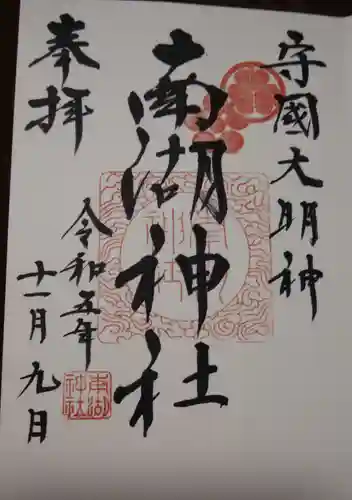 守國大明神
南湖神社
奉拝
令和五年
十一月九日
南湖
神社